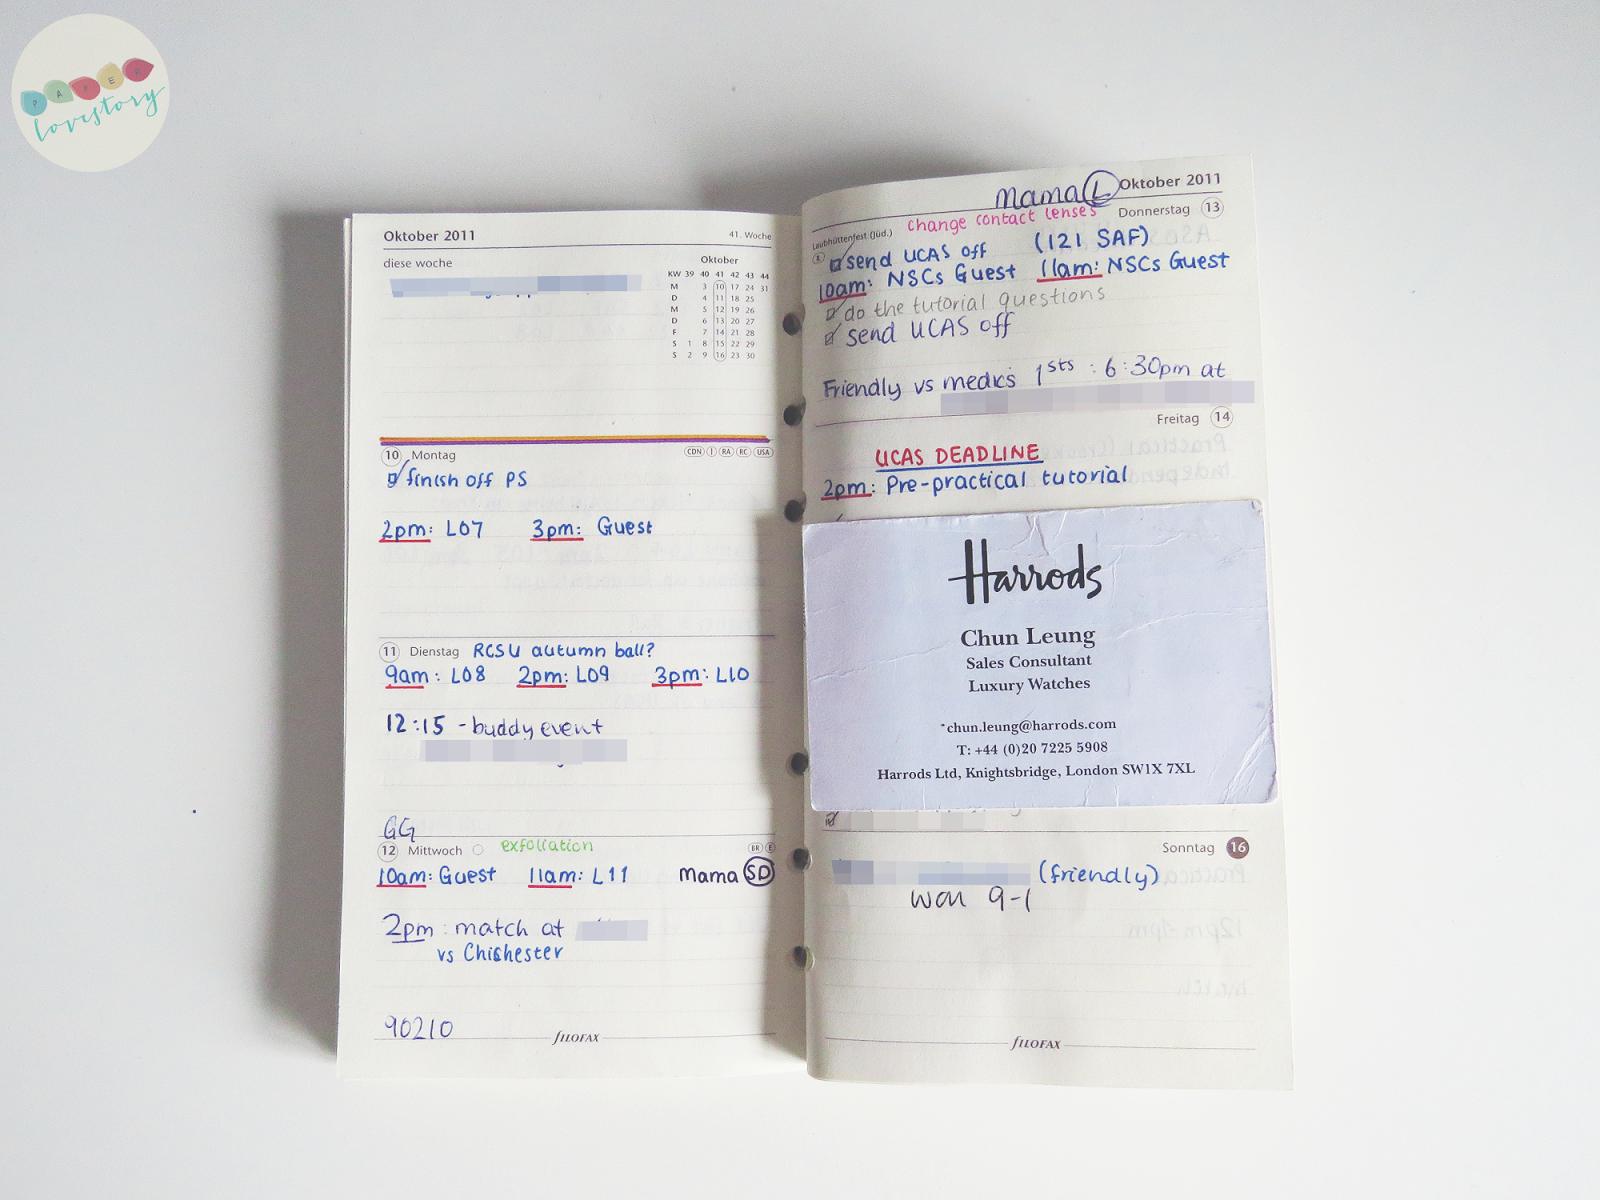 PAPER
lovestory
Oktober 2011
41. Woche
diese woche
Oktober
KW 39 40 41 42 43 44
M 3 10 17 24 31
D 4 11 18 25
M 5 12 19 26
D 6 13 20 27
F 7 14 21 28
S 1 8 15 22 29
S 2 9 16 23 30
10 Montag
CDN J RA RC USA
finish off PS
2pm: L07 3pm: Guest
11 Dienstag RCSU autumn ball?
9am: L08 2pm: L09 3pm: L10
12:15 - buddy event
GG
12 Mittwoch exfoliation
BR E
10am: Guest 11am: L11 Mama SD
2pm: match at
vs Chichester
90210
fILOFAX
Mama L Oktober 2011
change contact lenses Donnerstag 13
Laubhüttenfest (Jüd.)
E
send UCAS off (121 SAF)
10am: NSCs Guest 11am: NSCs Guest
do the tutorial questions
send UCAS off
Friendly vs medics 1sts : 6:30pm at
Freitag 14
UCAS DEADLINE
2pm: Pre-practical tutorial
Harrods
Chun Leung
Sales Consultant
Luxury Watches
chun.leung@harrods.com
T: +44 (0)20 7225 5908
Harrods Ltd, Knightsbridge, London SW1X 7XL
Sonntag 16
(friendly)
won 9-1
fILOFAX